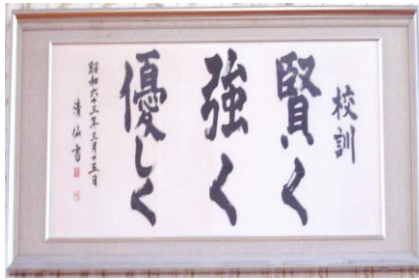 校訓
賢く
強く
優しく
昭和六十三年三月十五日
清仙書